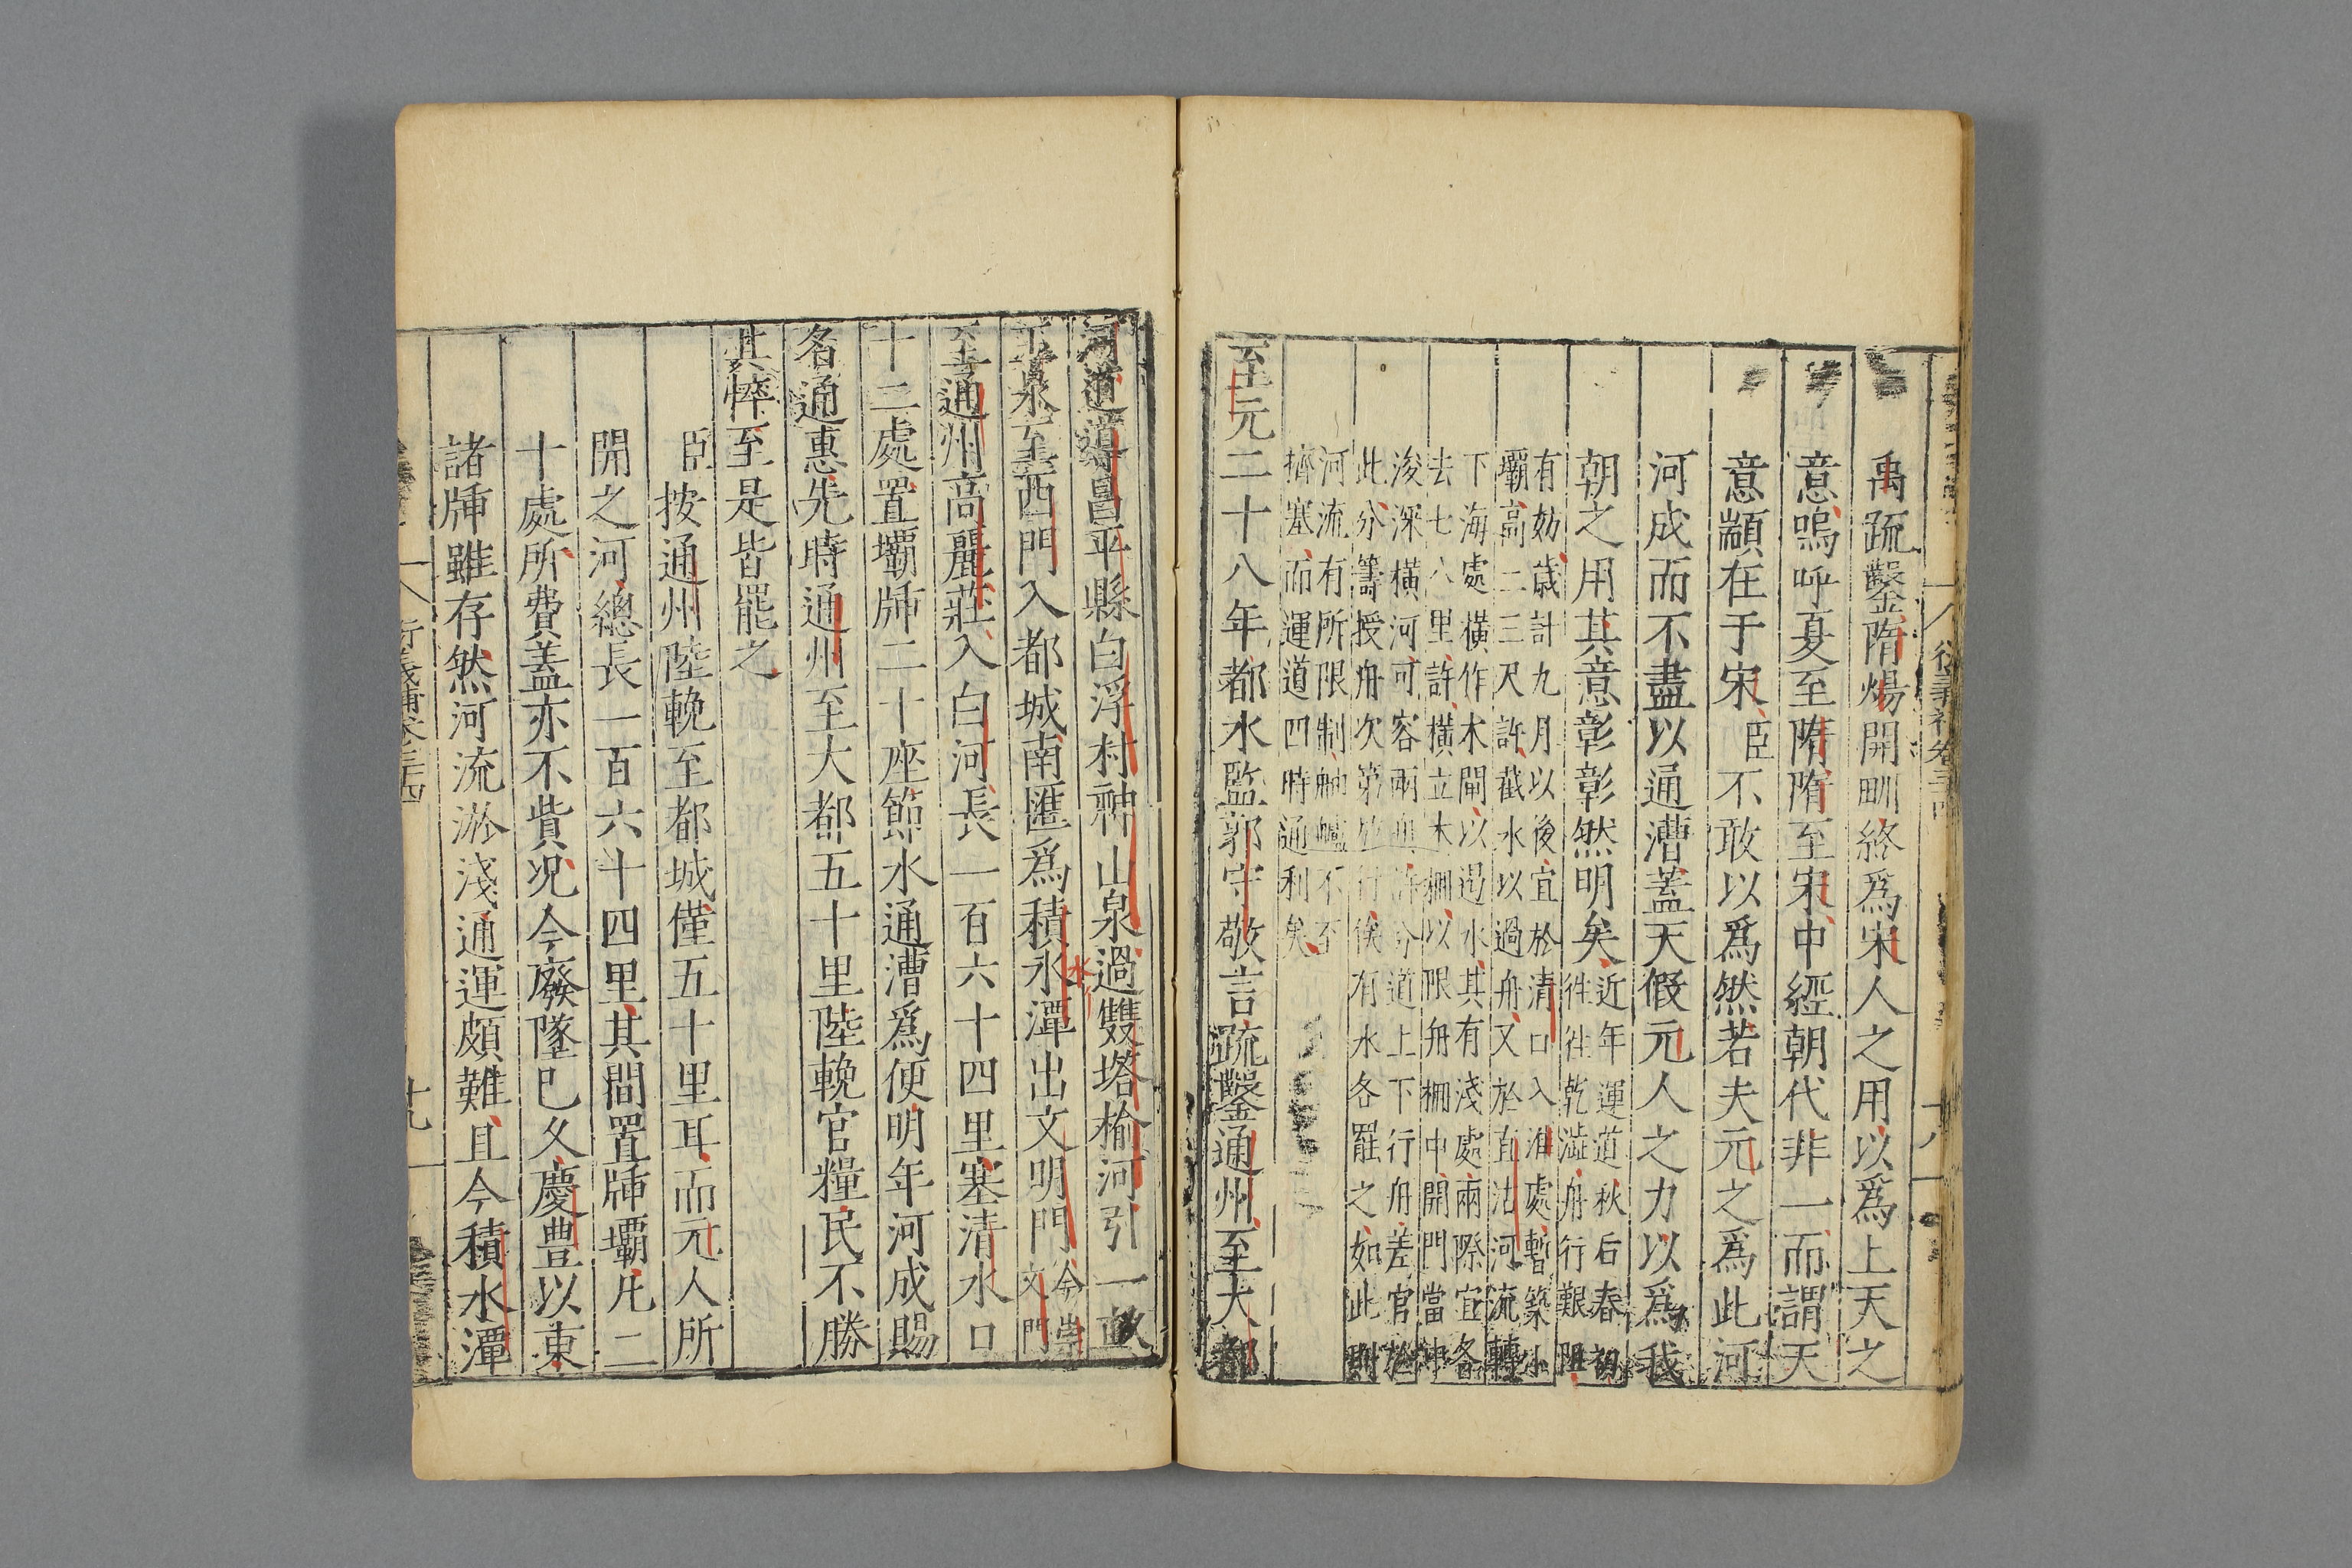 禹疏鑿隋煬開畎終爲宋人之用以爲上天之
意嗚呼夏至隋隋至宋中經朝代非一而謂天
意顓在于宋臣不敢以爲然若夫元之爲此河
河成而不盡以通漕蓋天假元人之力以爲我
朝之用其意彰彰然明矣近年運道秋后春初
徃徃乾澁舟行艱阻
有妨歲計九月以後宜於清口入淮處暫築小
壩高二三尺許截水以過舟又於直沽河流轉
下海處橫作木閘以遏水其有淺處兩際宜各
去七八里許橫立木柵以限舟柵中開門當中
浚深橫河可容兩舟許分道上下行舟差官於
此分籌授舟次第放行俟有水各罷之如此則
河流有所限制舳艫不至
擠塞而運道四時通利矣
至元二十八年都水監郭守敬言疏鑿通州至大都
河道導昌平縣白浮村神山泉過雙塔榆河引一畝
玉泉至西門入都城南匯爲積水潭出文明門今崇
文門
至通州高麗莊入白河長一百六十四里塞清水口
十二處置壩牐二十座節水通漕爲便明年河成賜
名通惠先時通州至大都五十里陸輓官糧民不勝
其悴至是皆罷之
臣按通州陸輓至都城僅五十里耳而元人所
開之河總長一百六十四里其間置牐壩凡二
十處所費蓋亦不貲況今廢墜已久慶豊以東
諸牐雖存然河流淤淺通運頗難且今積水潭